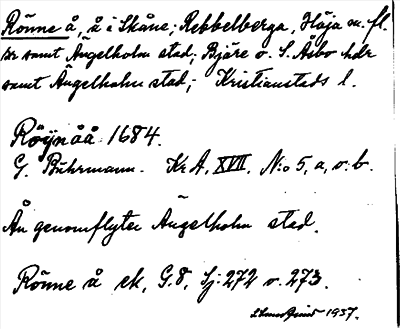 Rönne å, å i Skåne; Rebbelberga, Höja m. fl.
snr samt Ängelholm stad; Bjäre o. S. Åsbo hdr
samt Ängelholm stad; Kristianstads l.
Röÿnåå 1684.
G. Buhrmann. Kr A, XVII, N:o 5, a, o. b.
Ån genomflyter Ängelholm stad.
Rönne å ek, G.8, Sj: 272 o. 273.
1937.